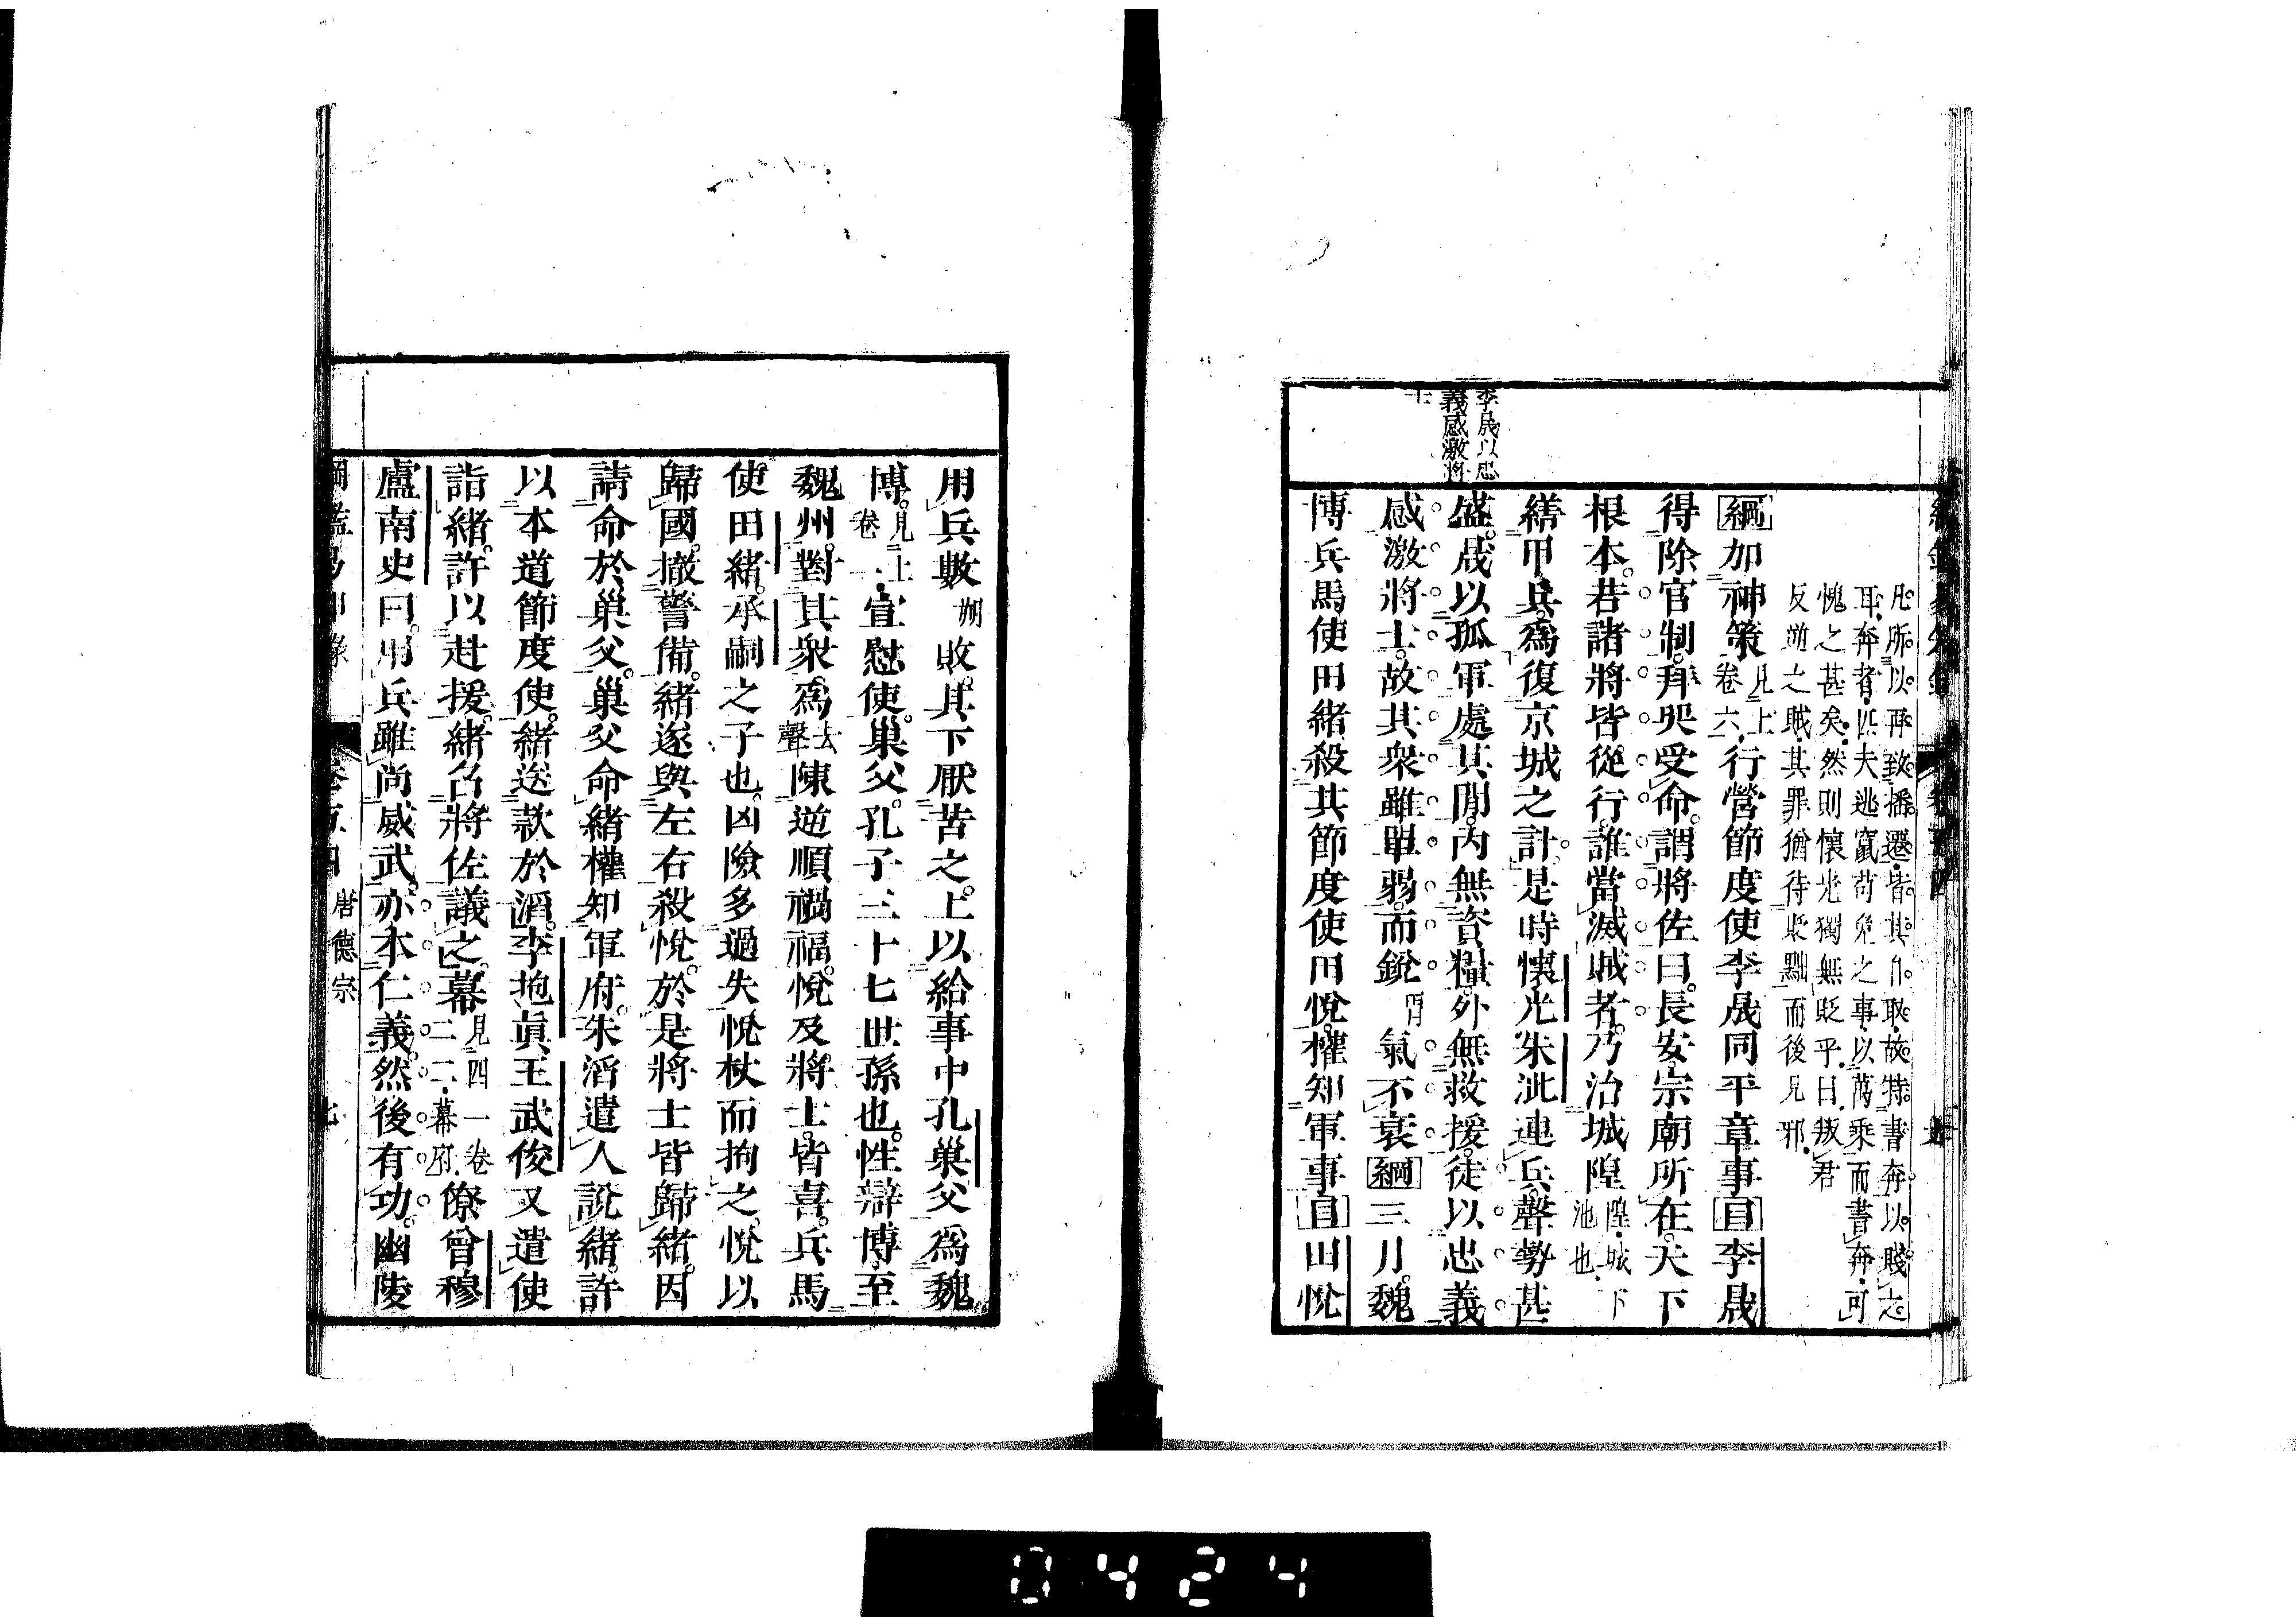 李晟以忠
義感激將
士
凡所以再致播遷皆其自取故特書奔以賤之
耳奔者匹夫逃竄苟免之事以萬乘而書奔可
愧之甚矣然則懷光獨無貶乎曰叛君
反逆之賊其罪猶待貶黜而後見邪
綱加神策見上卷六行營節度使李晟同平章事目李晟
得除官制拜哭受命謂將佐曰長安宗廟所在天下
根本若諸將皆從行誰當滅賊者乃治城隍隍城下池也
繕甲兵爲復京城之計是時懷光朱泚連兵聲勢甚
盛晟以孤軍處其閒內無資糧外無救援徒以忠義
感激將士故其衆雖單弱而銳氣不衰綱三月魏
博兵馬使田緒殺其節度使田悅權知軍事目田悅
用兵數朔敗其下厭苦之上以給事中孔巢父爲魏
博見上卷一宣慰使巢父孔子三十七世孫也性辯博至
魏州對其衆爲去聲陳逆順禍福悅及將士皆喜兵馬
使田緒承嗣之子也凶險多過失悅杖而拘之悅以
歸國撤警備緒遂與左右殺悅於是將士皆歸緒因
請命於巢父巢父命緒權知軍府朱滔遣人說緒許
以本道節度使緒送款於滔李抱眞王武俊又遣使
詣緒許以赴援緒召將佐議之幕見四一卷二二幕府僚曾穆
盧南史曰用兵雖尚威武亦本仁義然後有功幽陵
綱鑑易知錄 卷五四 唐德宗 七
0424